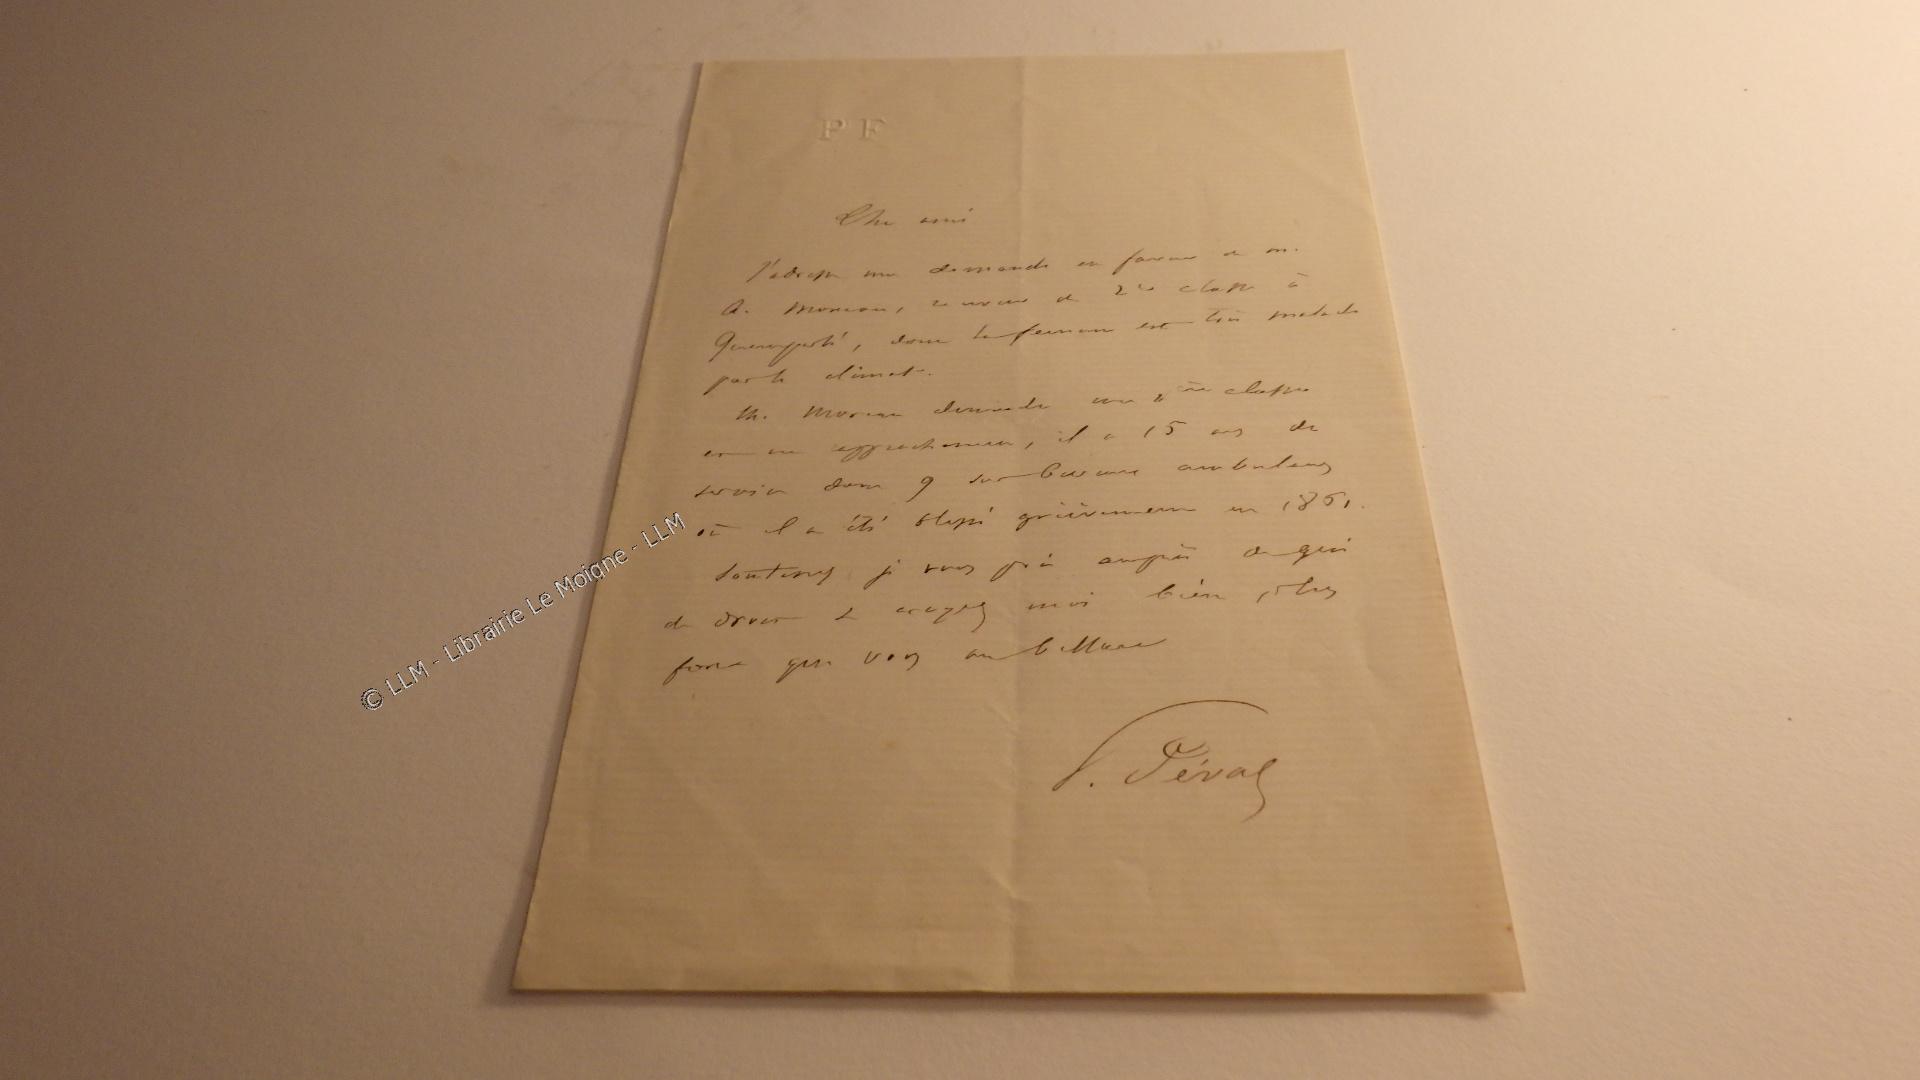 P F
Cher ami
J'adresse une demande en faveur de m.
A. Moreau, receveur de 2e classe à
dont la femme est très malade
par le climat.
M. Moreau demande une 2ème classe
en se rapprochant, il a 15 ans de
service dont 9 sur bureaux ambulants
où il a été blessé grièvement en 1861.
je vous prie auprès de qui
de droit & croyez moi bien
que vous
P. Féval
© LLM - Librairie Le Moigne - LLM